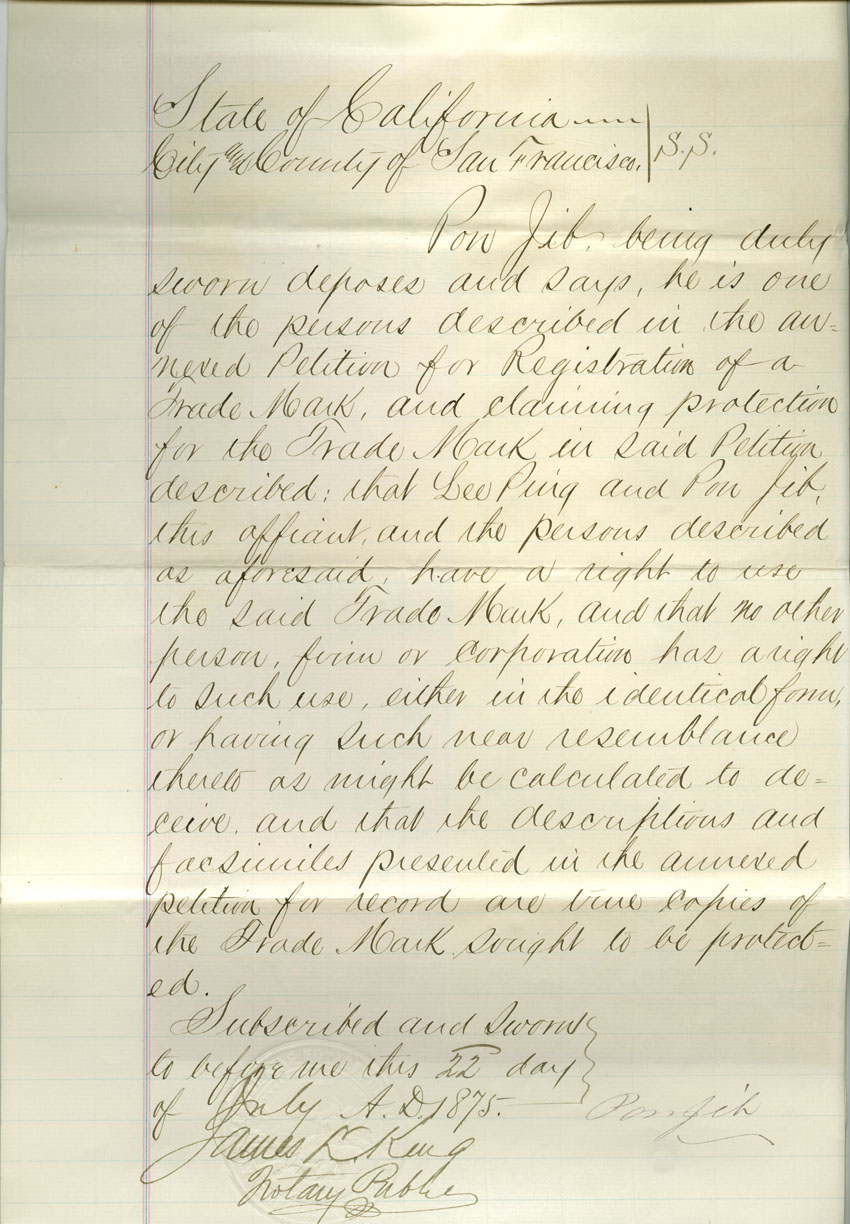 State of California
City and County of San Francisco. S.S.
Pon Jib, being duly
sworn deposes and says, he is one
of the persons described in the an=
nexed Petition for Registration of a
Trade Mark, and claiming protection
for the Trade Mark in said Petition
described; that Lee Ping and Pon Jib,
this affiant, and the persons described
as aforesaid, have a right to use
the said Trade Mark, and that no other
person, firm or corporation has a right
to such use, either in the identical form,
or having such near resemblance
thereto as might be calculated to de=
ceive, and that the descriptions and
facsimiles presented in the annexed
petition for record are true copies of
the Trade Mark sought to be protect=
ed.
Subscribed and sworn
to before me this 22 day
of July A.D. 1875. Pon Jib
James L. King
Notary Public